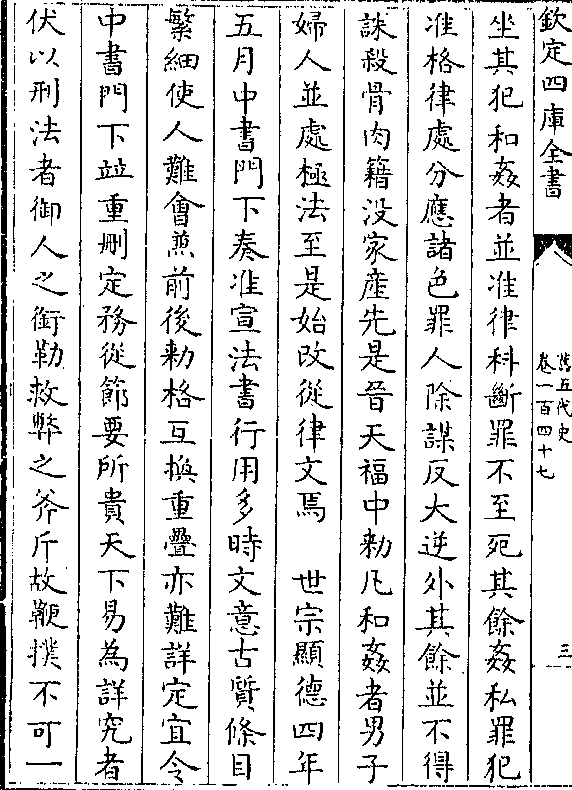 欽定四庫全書
舊五代史
卷一百四十七
三
坐其犯和姦者並准律科斷罪不至死其餘姦私罪犯
准格律處分應諸色罪人除謀反大逆外其餘並不得
誅殺骨肉籍没家産先是晉天福中勅凡和姦者男子
婦人並處極法至是始改從律文焉　世宗顯德四年
五月中書門下奏准宣法書行用多時文意古質條目
繁細使人難㑹兼前後勅格互換重疊亦難詳定宜令
中書門下並重刪定務從節要所貴天下易為詳究者
伏以刑法者御人之銜勒救弊之斧斤故鞭撲不可一